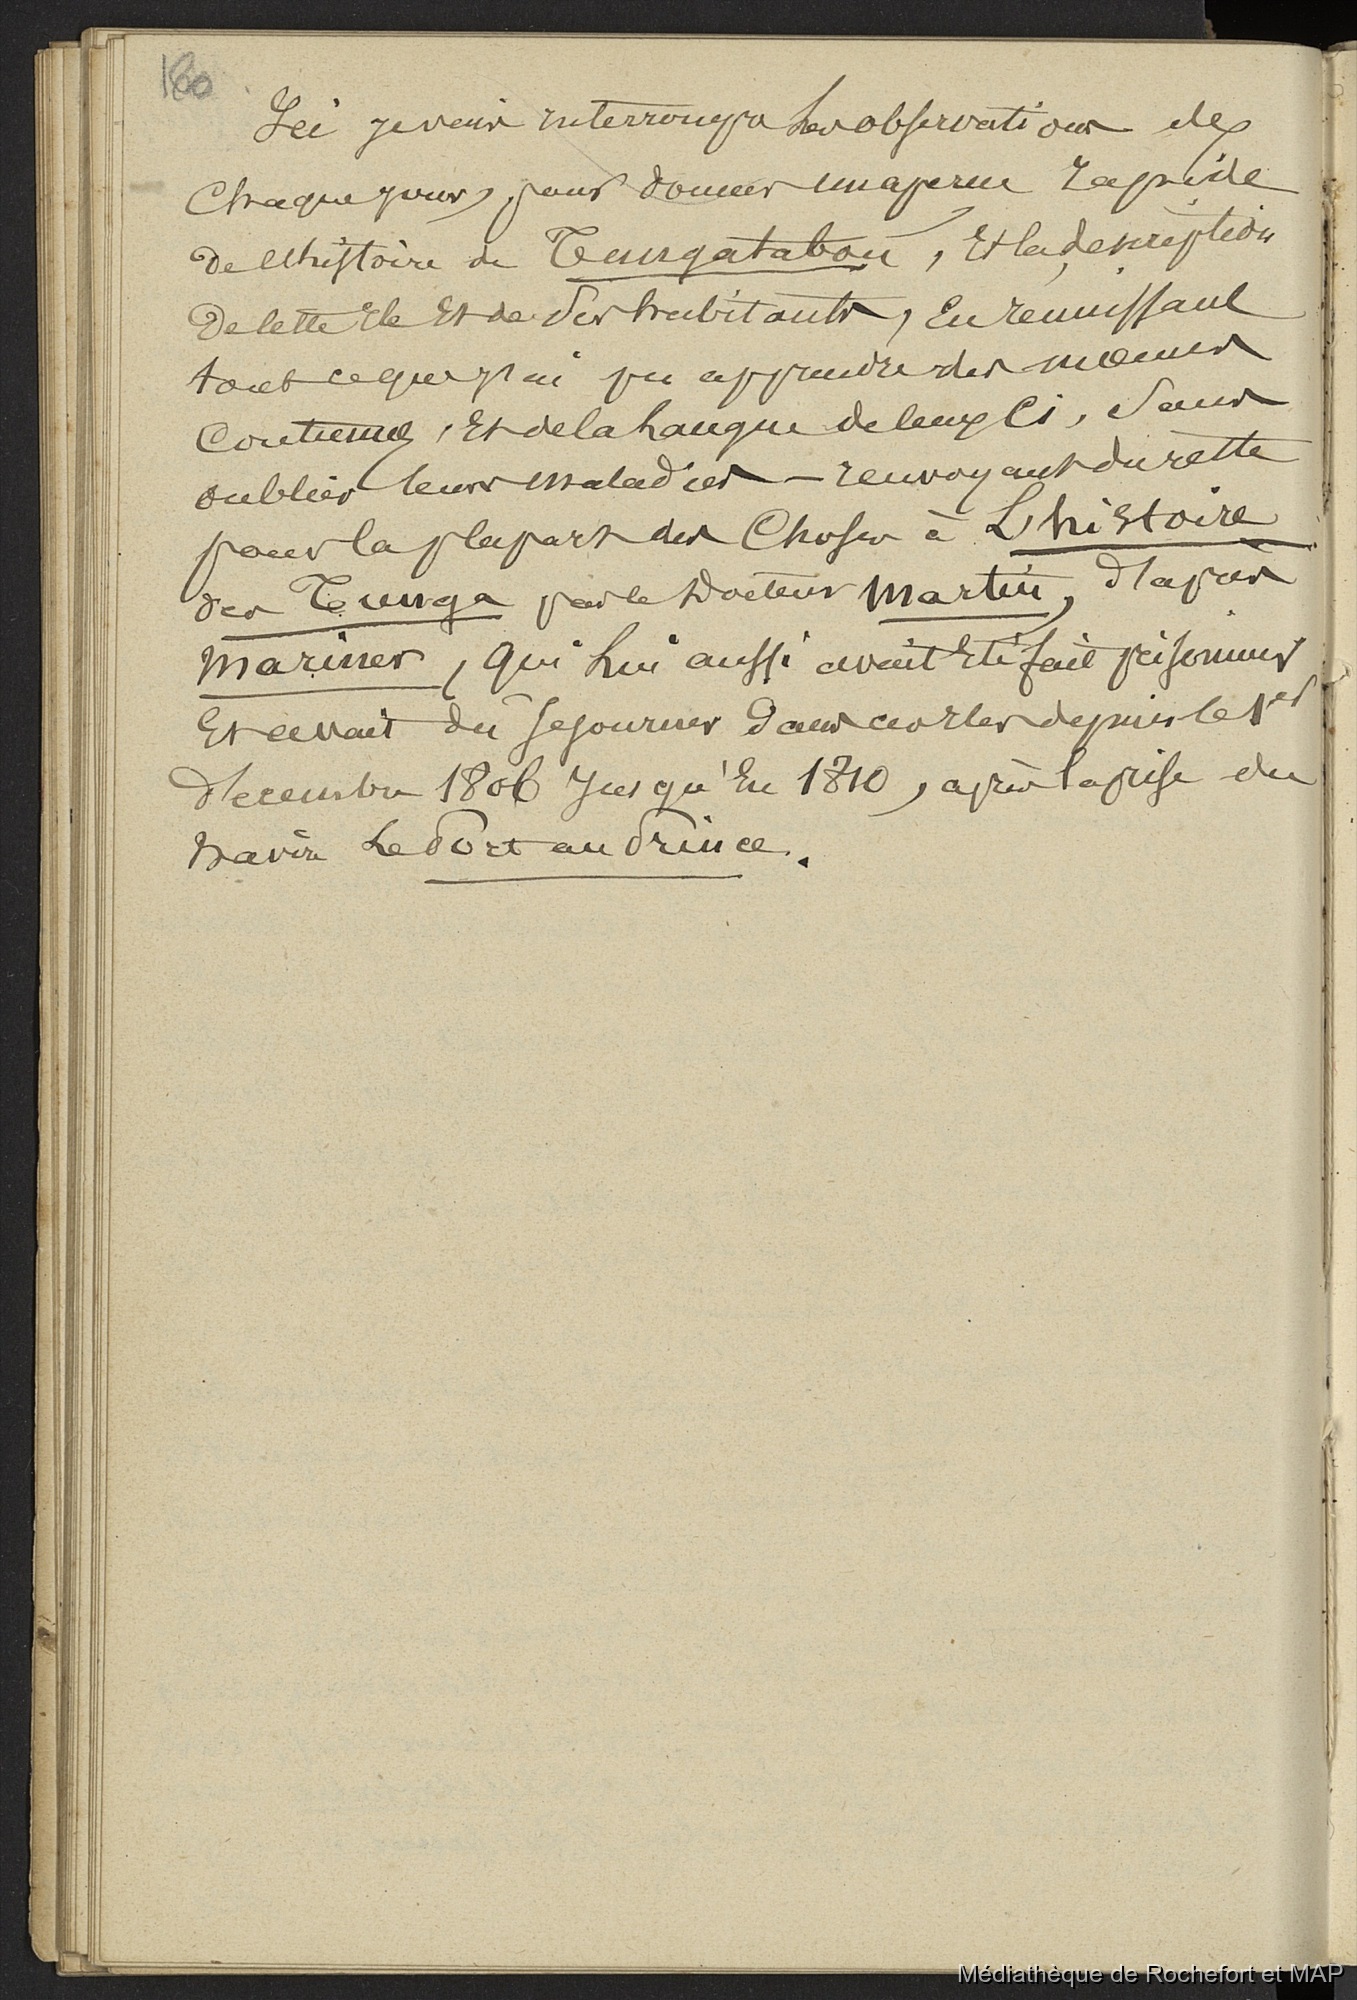 180
Ici je vais interrompre Les observations de
Chaque jour, pour donner un aperçu rapide
De l'histoire de Toungatabou, Et la description
De cette ile Et de Ses habitants, En reunissant
tout ce que j'ai pu apprendre des moeurs
Coutumes, Et de la Langue de ceux Ci, Sans
oublier leurs maladies – renvoyant du reste
pour la plupart des Choses à L'histoire
des Tounga par le Docteur Martin, d'après
Mariner, qui Lui aussi avait Eté fait prisonnier
Et avait du sejourner dans ces iles depuis le 1er
decembre 1806 Jusqu'En 1810, après la prise du
navire Le Port au Prince.
Médiathèque de Rochefort et MAP